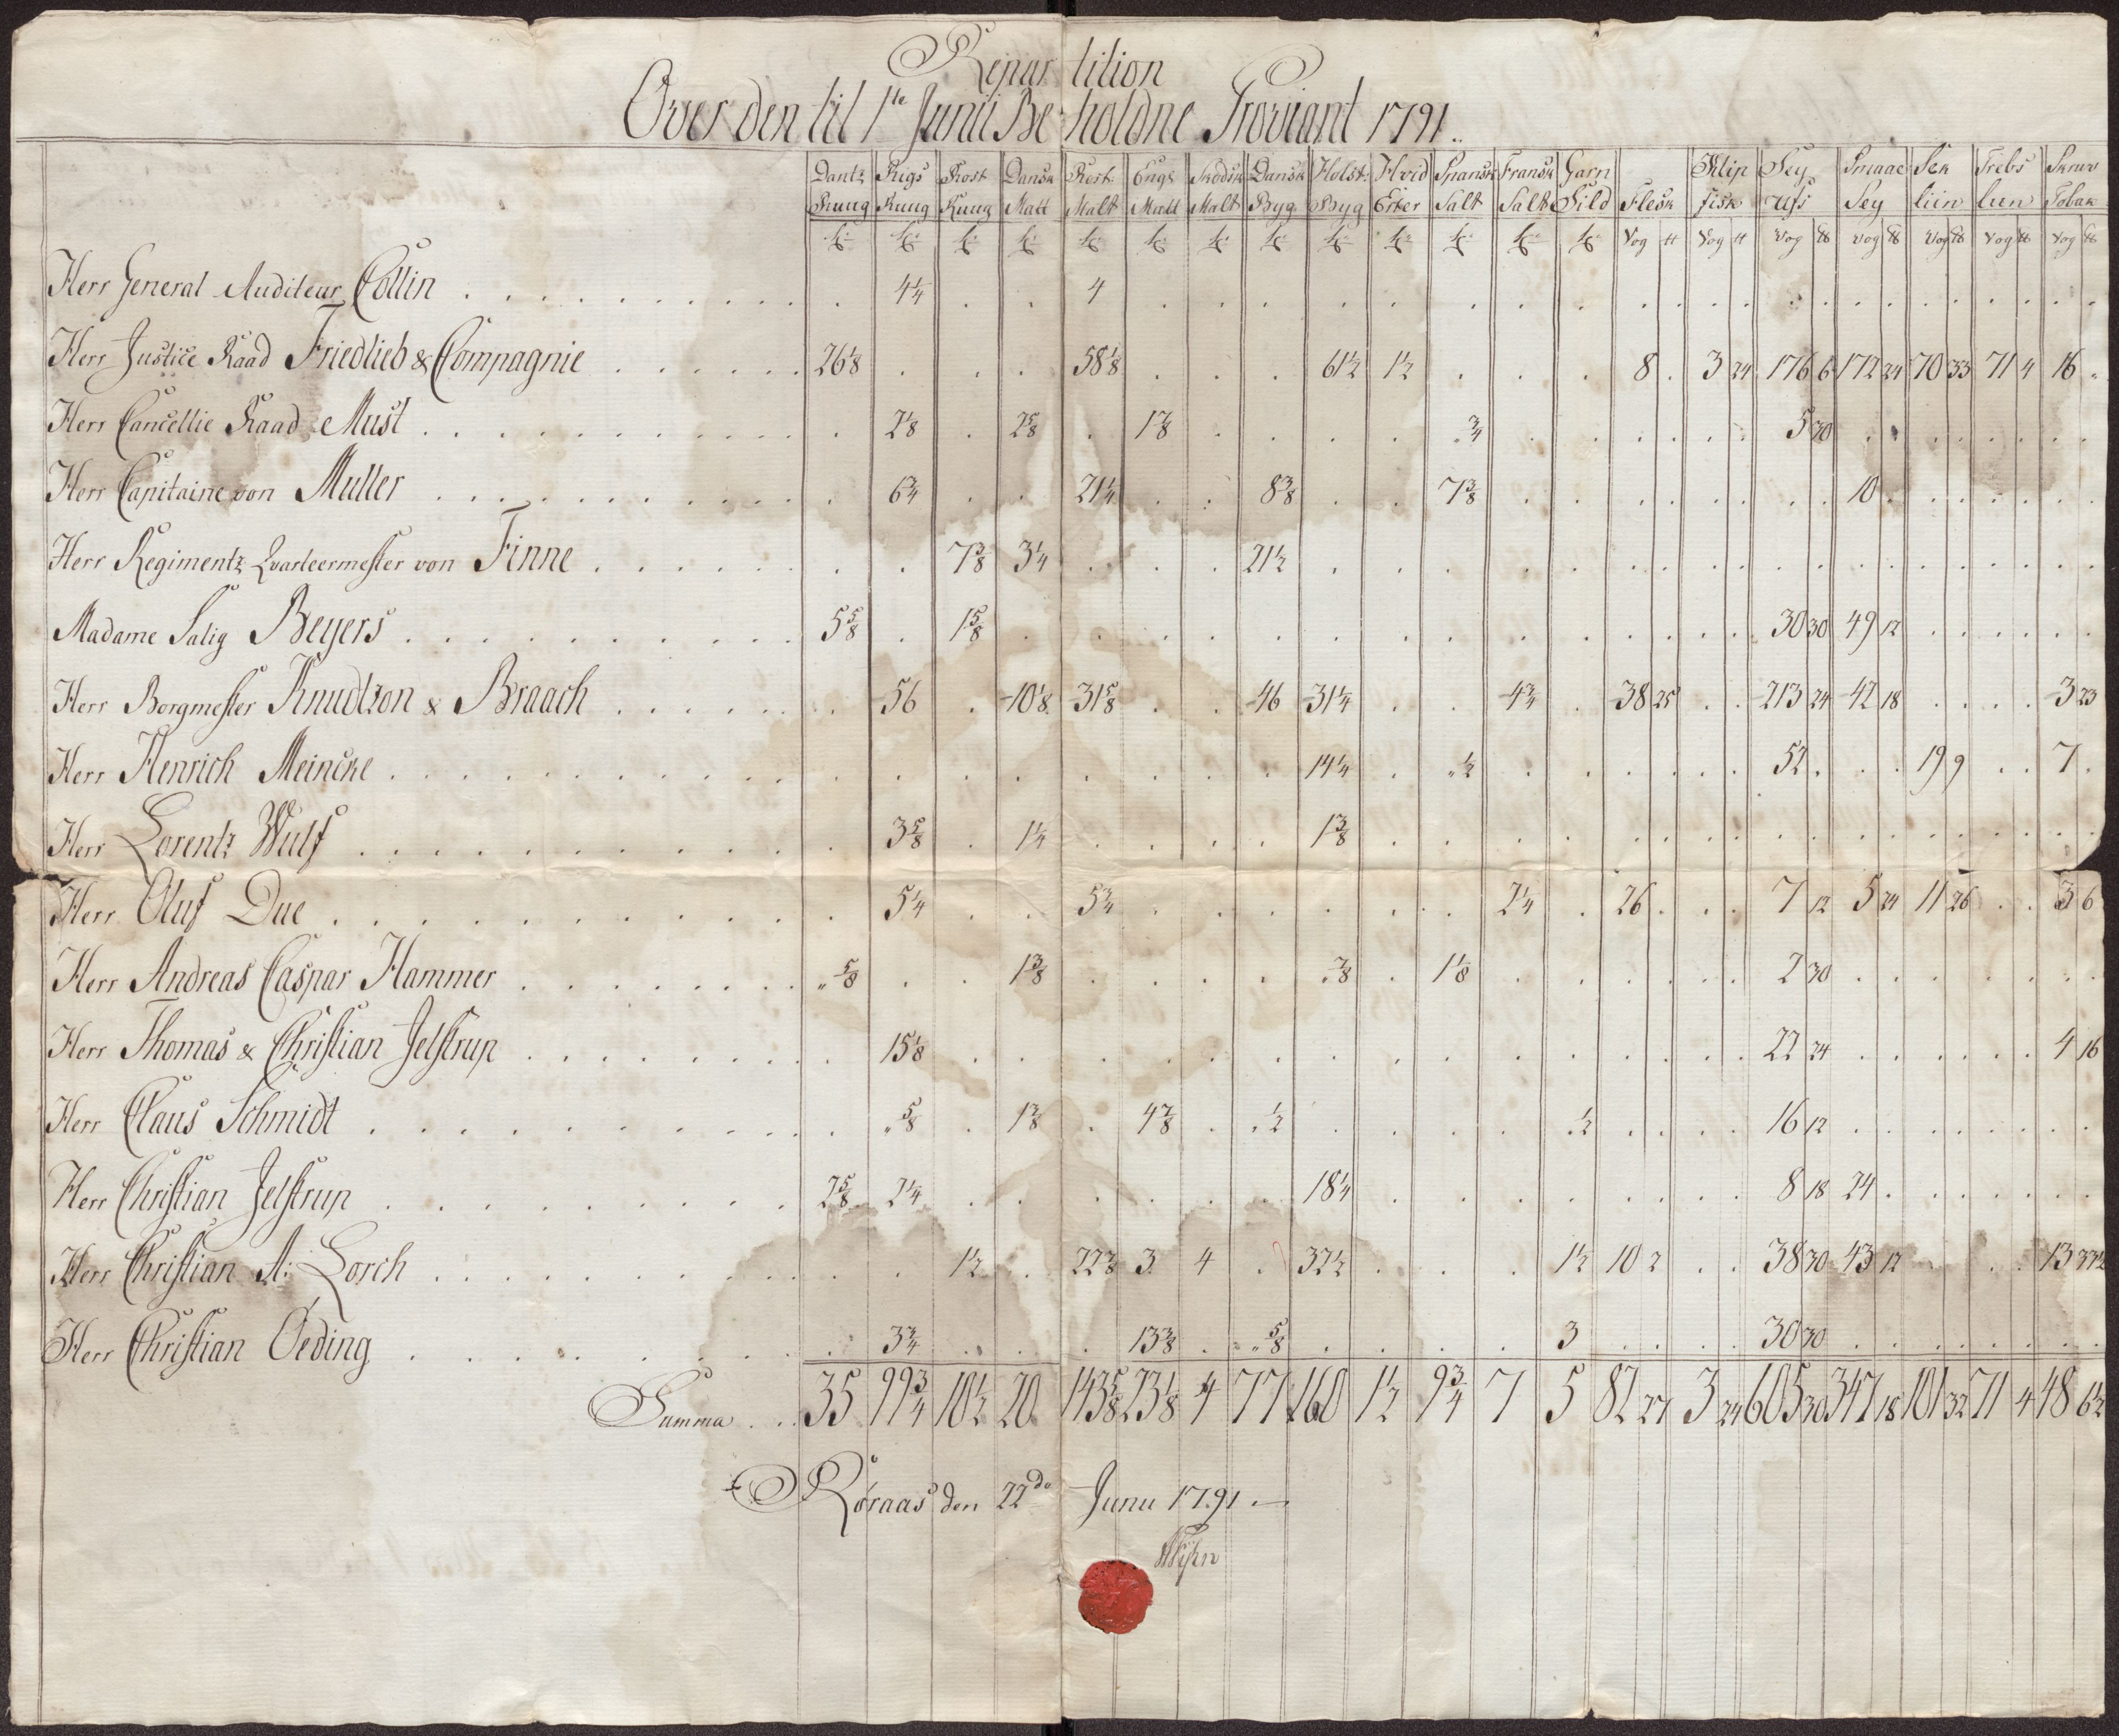 Repartition
Over den til 1te Junii Beholdne Proviant 1791.
Dantz Rug Rigs Rug Rost Rug Dansk Malt Rost: Malt Engs Malt Skodsk Malt Dansk Byg Holst: Byg Hvid Erter Spansk Salt Fransk Salt Garn Sild Flesk Klip fisk Sey Ufs Smaae Sey Sek liin Trebs liin Skruv Tobak
Vog ℔ Vog ℔ Vog ℔ Vog ℔ Vog ℔ Vog ℔ Vog ℔
Herr General Auditeur Collin . 4 1/4 . . 4
Herr Justice Raad Friedlieb & Compagnie 26 1/8 . . . 58 1/8 . . . 61 1/2 1 1/2 . . . 8 . 3 24 176 6 172 24 70 33 71 4 16 "
Herr Cancellie Raad Must . 2 1/8 . 2 5/8 . 1 7/8 . . . . " 3/4 . . . . . . 5 30
Herr Capitaine von Muller . 6 3/4 . . 21 1/4 . . 8 3/8 . . 7 3/8 . . . . . . . . 10
Herr Regimentz Qvarteermester von Finne . . 7 3/8 3 1/4 . . . 21 1/2
Madame Salig Beyers 5 5/8 . 1 5/8 . . . . . . . . . . . . . . 30 30 49 12
Herr Borgmester Knudtzon & Braach . 56 . 10 1/8 31 5/8 . . 46 31 1/4 . . 4 3/4 . 38 25 . . 213 24 42 18 . . . . 3 23
Herr Henrich Meincke . . . . . . . . 14 1/4 . " 1/2 . . . . . . 52 . . . 19 9 . . 7 .
Herr Lorentz Wulf . 3 5/8 . 1 1/4 . . . . 1 3/8
Herr Oluf Due . 5 1/4 . . 5 3/4 . . . . . . 2 1/4 . 26 . . . 7 12 5 24 11 26 . . 3 6
Herr Andreas Caspar Hammer " 5/8 . . 1 3/8 . . . . " 7/8 . 1 1/8 . . . . . . 2 30
Herr Thomas & Christian Jelstrup . 15 1/8 . . . . . . . . . . . . . . . 22 24 . . . . . . 4 16
Herr Claus Schmidt . " 5/8 . 1 3/8 . 4 7/8 . " 1/2 . . . . " 1/2 . . . . 16 12
Herr Christian Jelstrup 2 5/8 2 1/4 . . . . . . 18 1/4 . . . . . . . . 8 18 24
Herr Christian A: Lorch . . 1 1/2 . 22 7/8 3 4 . 32 1/2 . . . 1 1/2 10 2 . . 38 30 43 12 . . . . 13 33 1/2
Herr Christian Oeding . 3 3/4 . . . 13 3/8 . " 5/8 . . . . 3 . . . . 30 30
Summa 35 99 3/4 10 1/2 20 143 5/8 23 1/8 4 77 160 1 1/2 9 3/4 7 5 82 27 3 24 605 30 347 18 101 32 71 4 48 6 1/2
Röraas den 22de Junii 1791